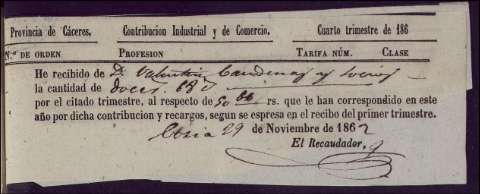 Provincia de Cáceres. Contribucion Industrial y de Comercio. Cuarto trimestre de 186
N.º DE ORDEN PROFESION TARIFA NÚM. CLASE
He recibido de D. Valentin y
la cantidad de
por el citado trimestre, al respecto de rs. que le han correspondido en este
año por dicha contribucion y recargos, segun se espresa en el recibo del primer trimestre.
Coria 29 de Noviembre de 1862
El Recaudador,